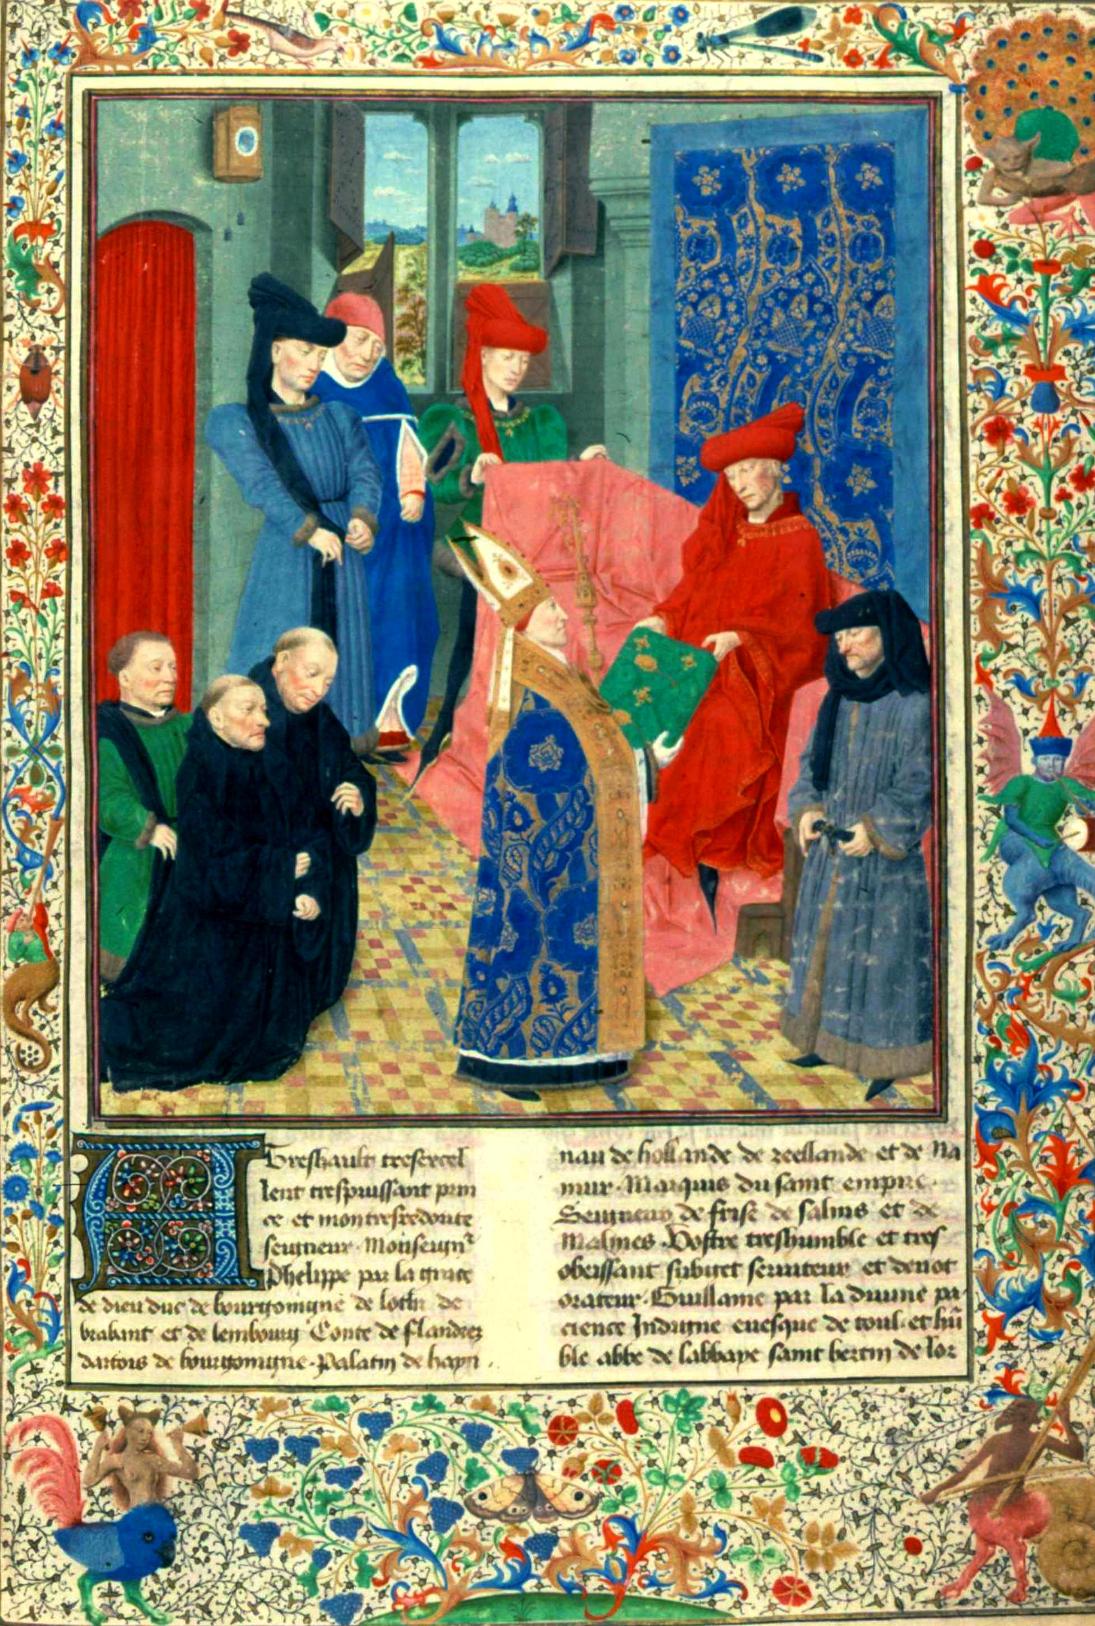 A Treshault tresexcel
lent trespuissant prin
ce et montresredoute
seigneur Monseignr
Phelippe par la grace
de dieu duc de bourgoingne de lothr de
brabant et de lembourg Conte de flandres
dartois de bourgoingne Palatin de heyn
nau de hollande de zeellande et de Na
mur Marquis du saint empire
Seigneur de frise de salins et de
Malines Vostre treshumble et tres
obeissant subiect seruiteur et deuot
orateur Guillame par la diuine pa
cience Indigne euesque de toul et hu
ble abbe de labbaye saint bertin de lor